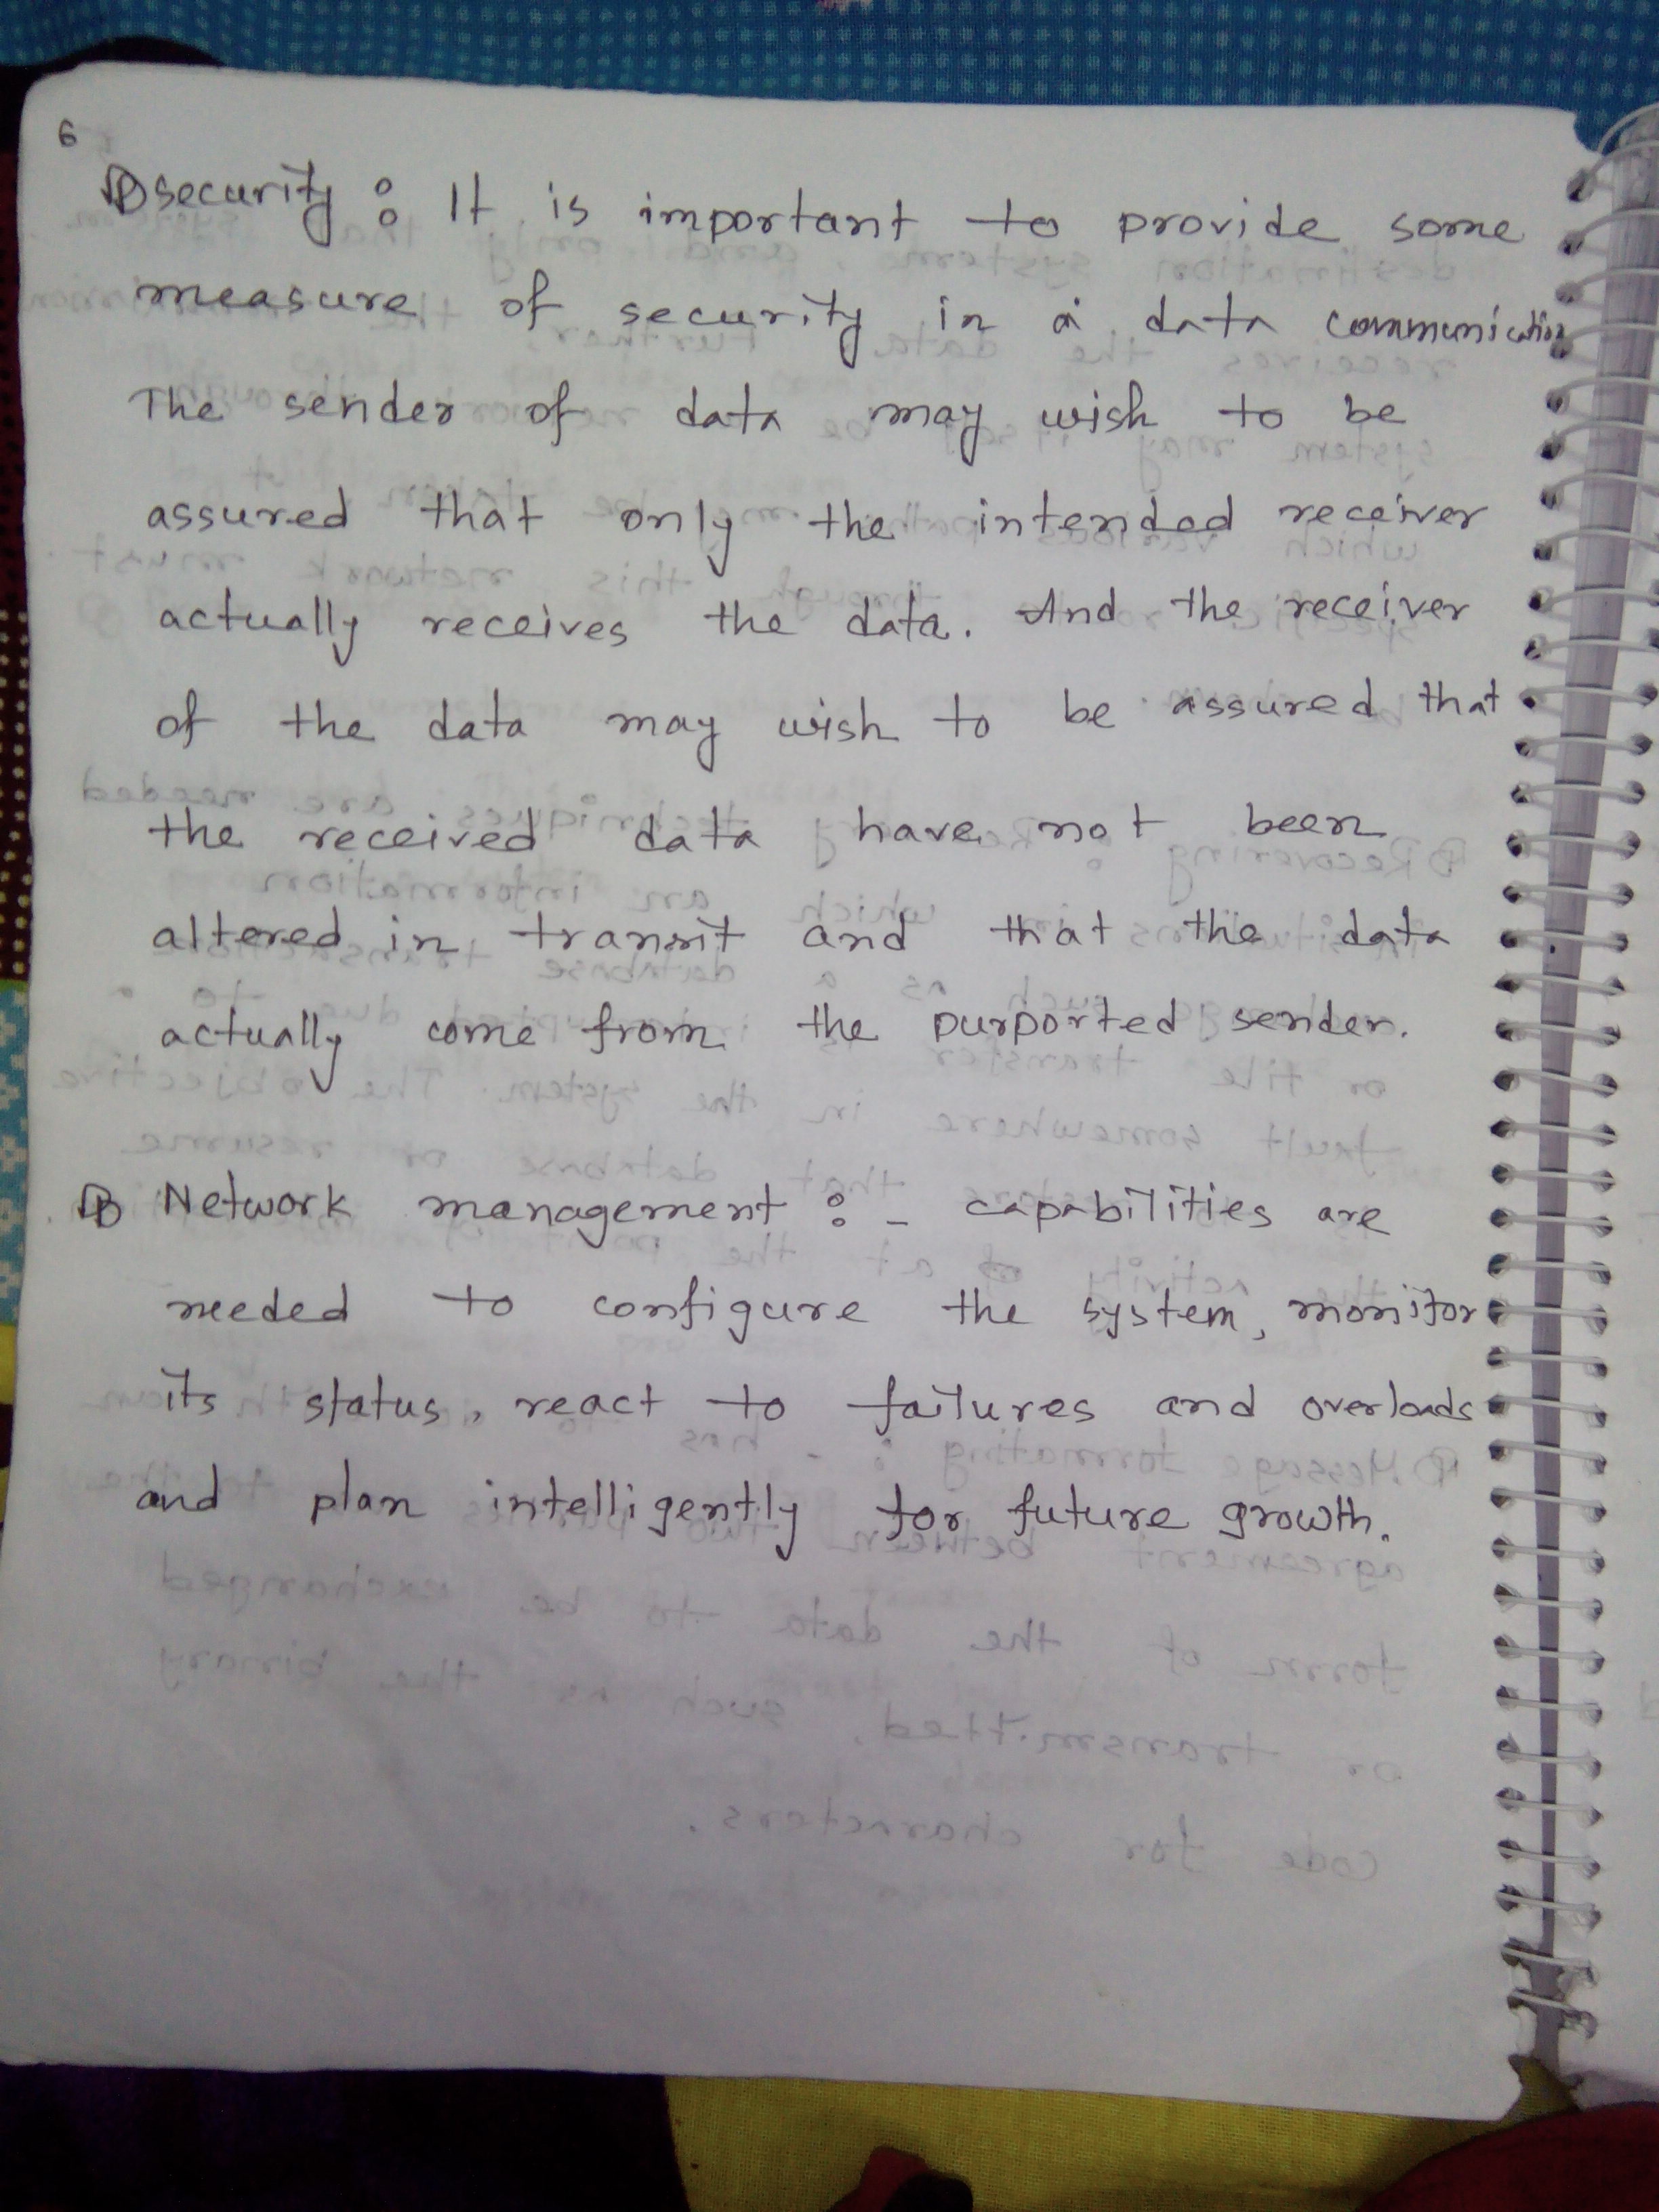 6
security : It is important to provide some
measure of security in a data communication
The sender of data may wish to be
assured that only the intended receiver
actually receives the data. And the receiver
of the data may wish to be assured that
the received data have not been
altered in transit and that the data
actually come from the purported sender.
Network management : - capabilities are
needed to configure the system, monitor
its status, react to failures and overloads
and plan intelligently for future growth.